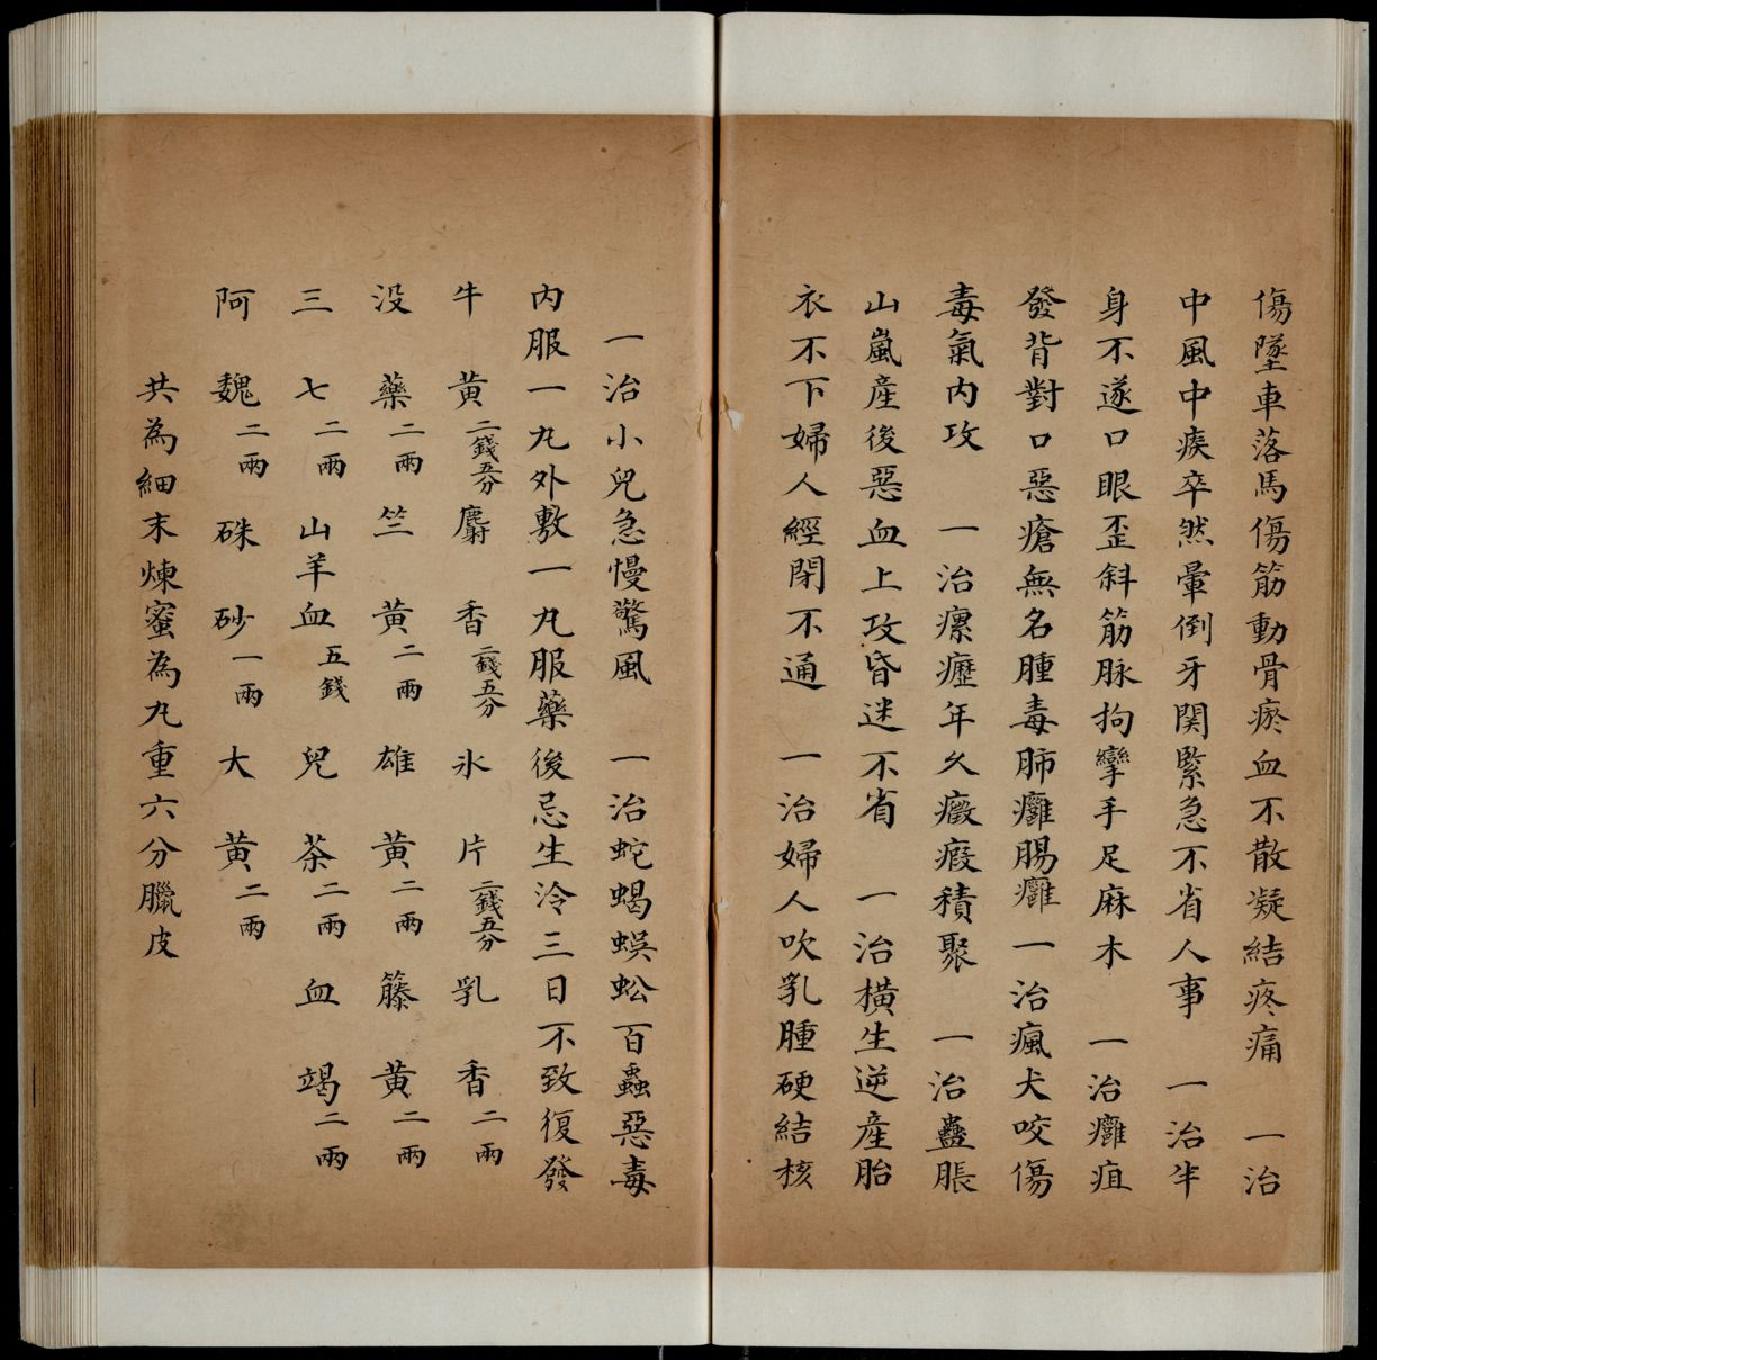 傷墜車落馬傷筋動骨瘀血不散凝結疼痛　一治
中風中痰卒然暈倒牙関緊急不省人事　一治半
身不遂口眼歪斜筋脉拘攣手足麻木　一治癰疽
發背對口惡瘡無名腫毒肺癰腸癰　一治瘋犬咬傷
毒氣内攻　一治瘰癧年久癥瘕積聚　一治蠱脹
山嵐産後惡血上攻昏迷不省　一治橫生逆産胎
衣不下婦人經閉不通　一治婦人吹乳腫硬結核
一治小兒急慢驚風　一治蛇蝎蜈蚣百蟲惡毒
内服一丸外敷一丸服藥後忌生冷三日不致復發
牛黃二錢五分　麝香二錢五分　氷片二錢五分　乳香二兩
没藥二兩　竺黃二兩　雄黃二兩　籐黃二兩
三七二兩　山羊血五錢　兒茶二兩　血竭二兩
阿魏二兩　硃砂一兩　大黃二兩
共為細末煉蜜為丸重六分臘皮